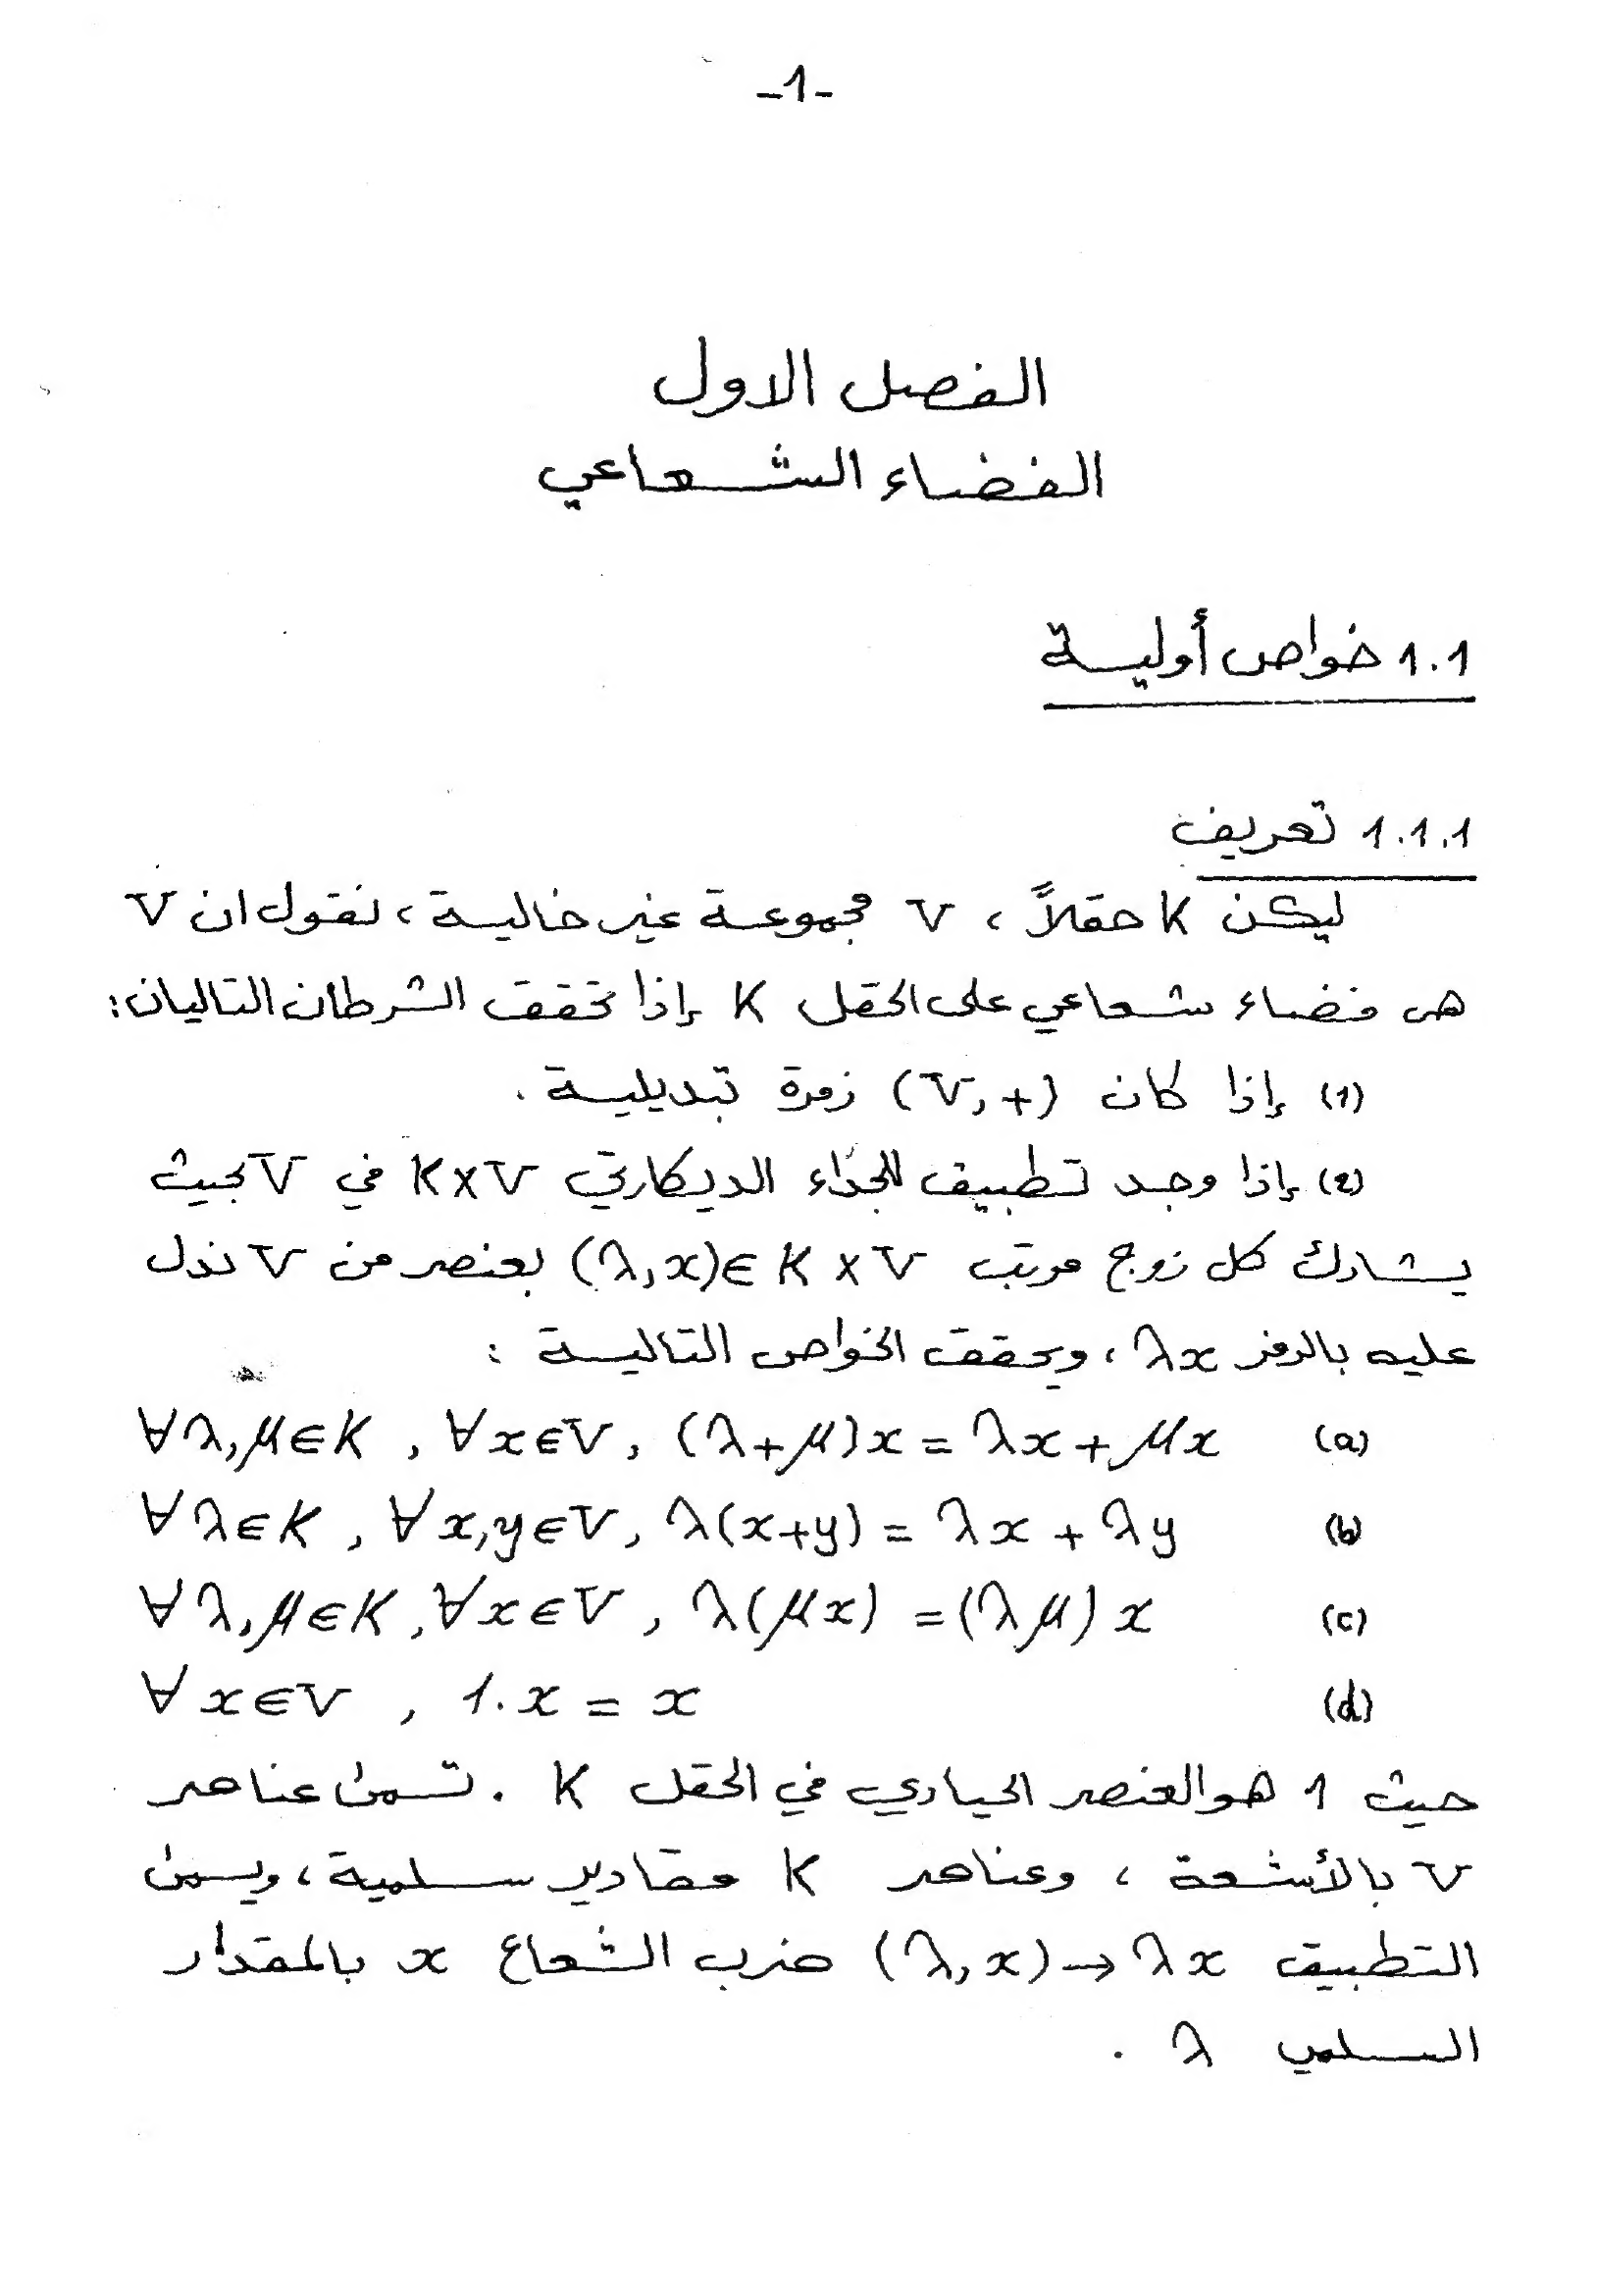 -1-
الفصل الاول
الفضاء الشعاعي
1.1 خواص أولية
1.1.1 تعريف
ليكن K حقلاً ، V مجموعة غير خالية ، نقول ان V
هي فضاء شعاعي على الحقل K إذا تحقق الشرطان التاليان:
(1) إذا كان (V,+) زمرة تبديلية .
(2) إذا وجد تطبيق للجداء الديكارتي K×V في V بحيث
يشارك كل زوج مرتب (λ,x)∈K×V بعنصر من V ندل
عليه بالرمز λx ، ويحقق الخواص التالية :
(a) ∀λ,μ∈K , ∀x∈V , (λ+μ)x = λx + μx
(b) ∀λ∈K , ∀x,y∈V , λ(x+y) = λx + λy
(c) ∀λ,μ∈K , ∀x∈V , λ(μx) = (λμ)x
(d) ∀x∈V , 1.x = x
حيث 1 هو العنصر الحيادي في الحقل K . تسمى عناصر
V بالأشعة ، وعناصر K مقادير سلمية ، ويسمى
التطبيق (λ,x)→λx ضرب الشعاع x بالمقدار
السلمي λ .